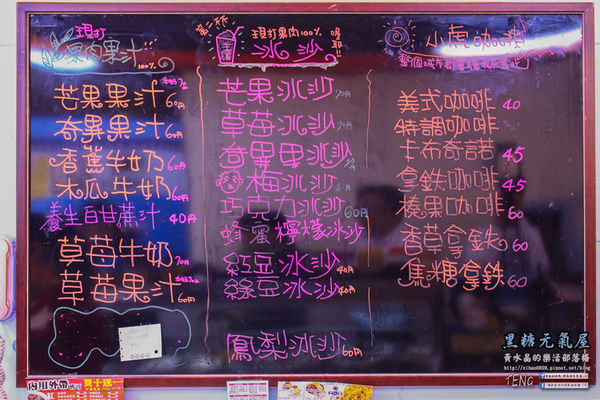 現打
果肉果汁
100%
芒果果汁 60円
奇異果汁 60円
香蕉牛奶 60円
木瓜牛奶 60円
養生百甘蔗汁 40円
草莓牛奶 70円
草莓果汁 60円
第二杯
現打果肉100% 喔耶!!
冰沙
芒果冰沙 70円
草莓冰沙 70円
奇異果冰沙
梅冰沙
巧克力冰沙 60円
蜂蜜檸檬冰沙
紅豆冰沙 40円
綠豆冰沙 40円
鳳梨冰沙 60円
小虎咖啡
美式咖啡 40
特調咖啡
卡布奇諾 45
拿鐵咖啡 45
榛果咖啡 60
香草拿鐵 60
焦糖拿鐵 60
黑糖元氣屋
黃水晶的樂活部落格
TENG
內用外帶
買十送